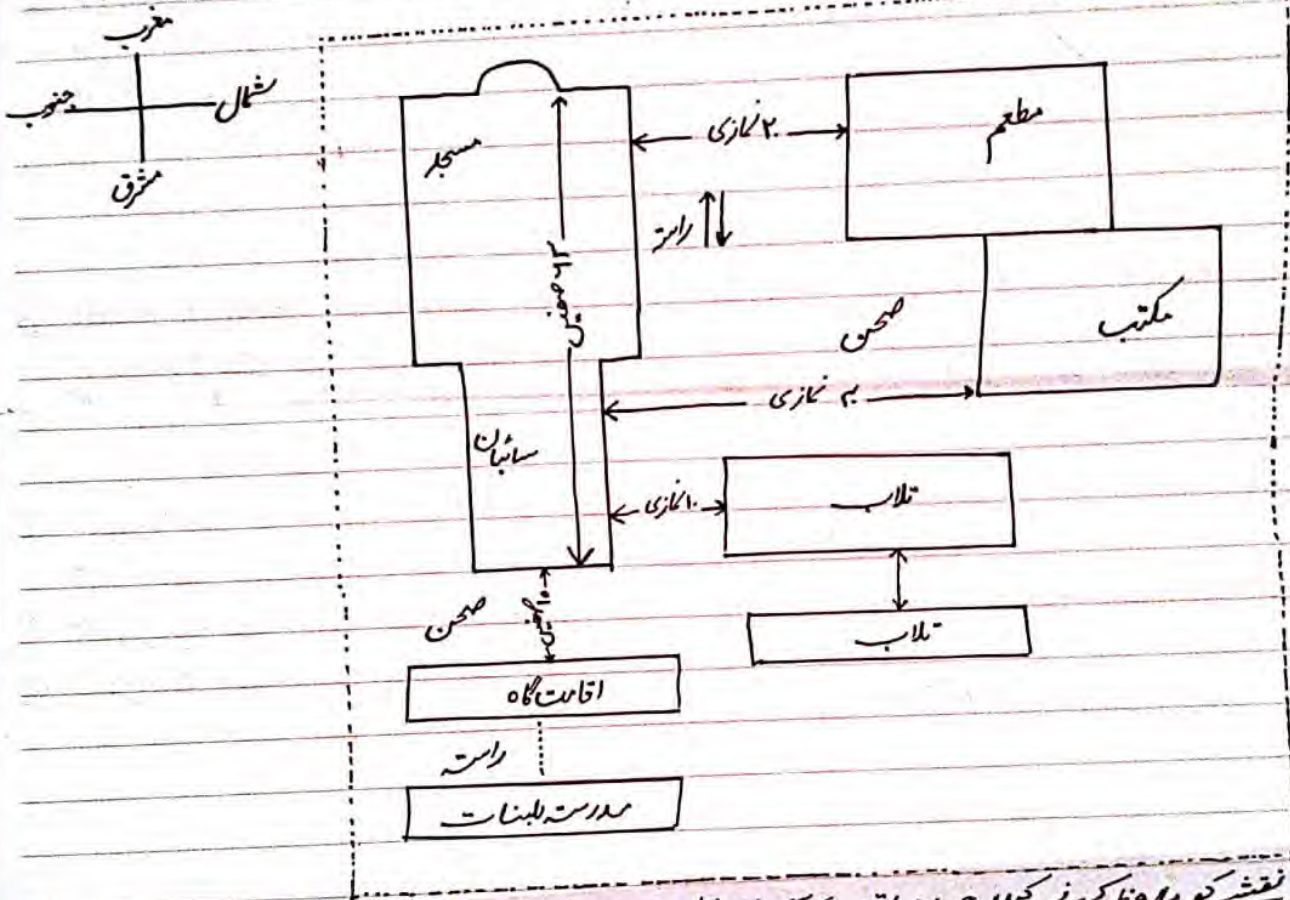 مغرب
جنوب
شمال
مشرق
مسجد
۲۰ نمازی
مطعم
راستہ
۶۳ صفیں
صحن
مکتب
۴۰ نمازی
سائبان
۱۰ نمازی
تلاب
صحن
۱۰ صفیں
تلاب
اقامت گاہ
راستہ
مدرسۃ للبنات